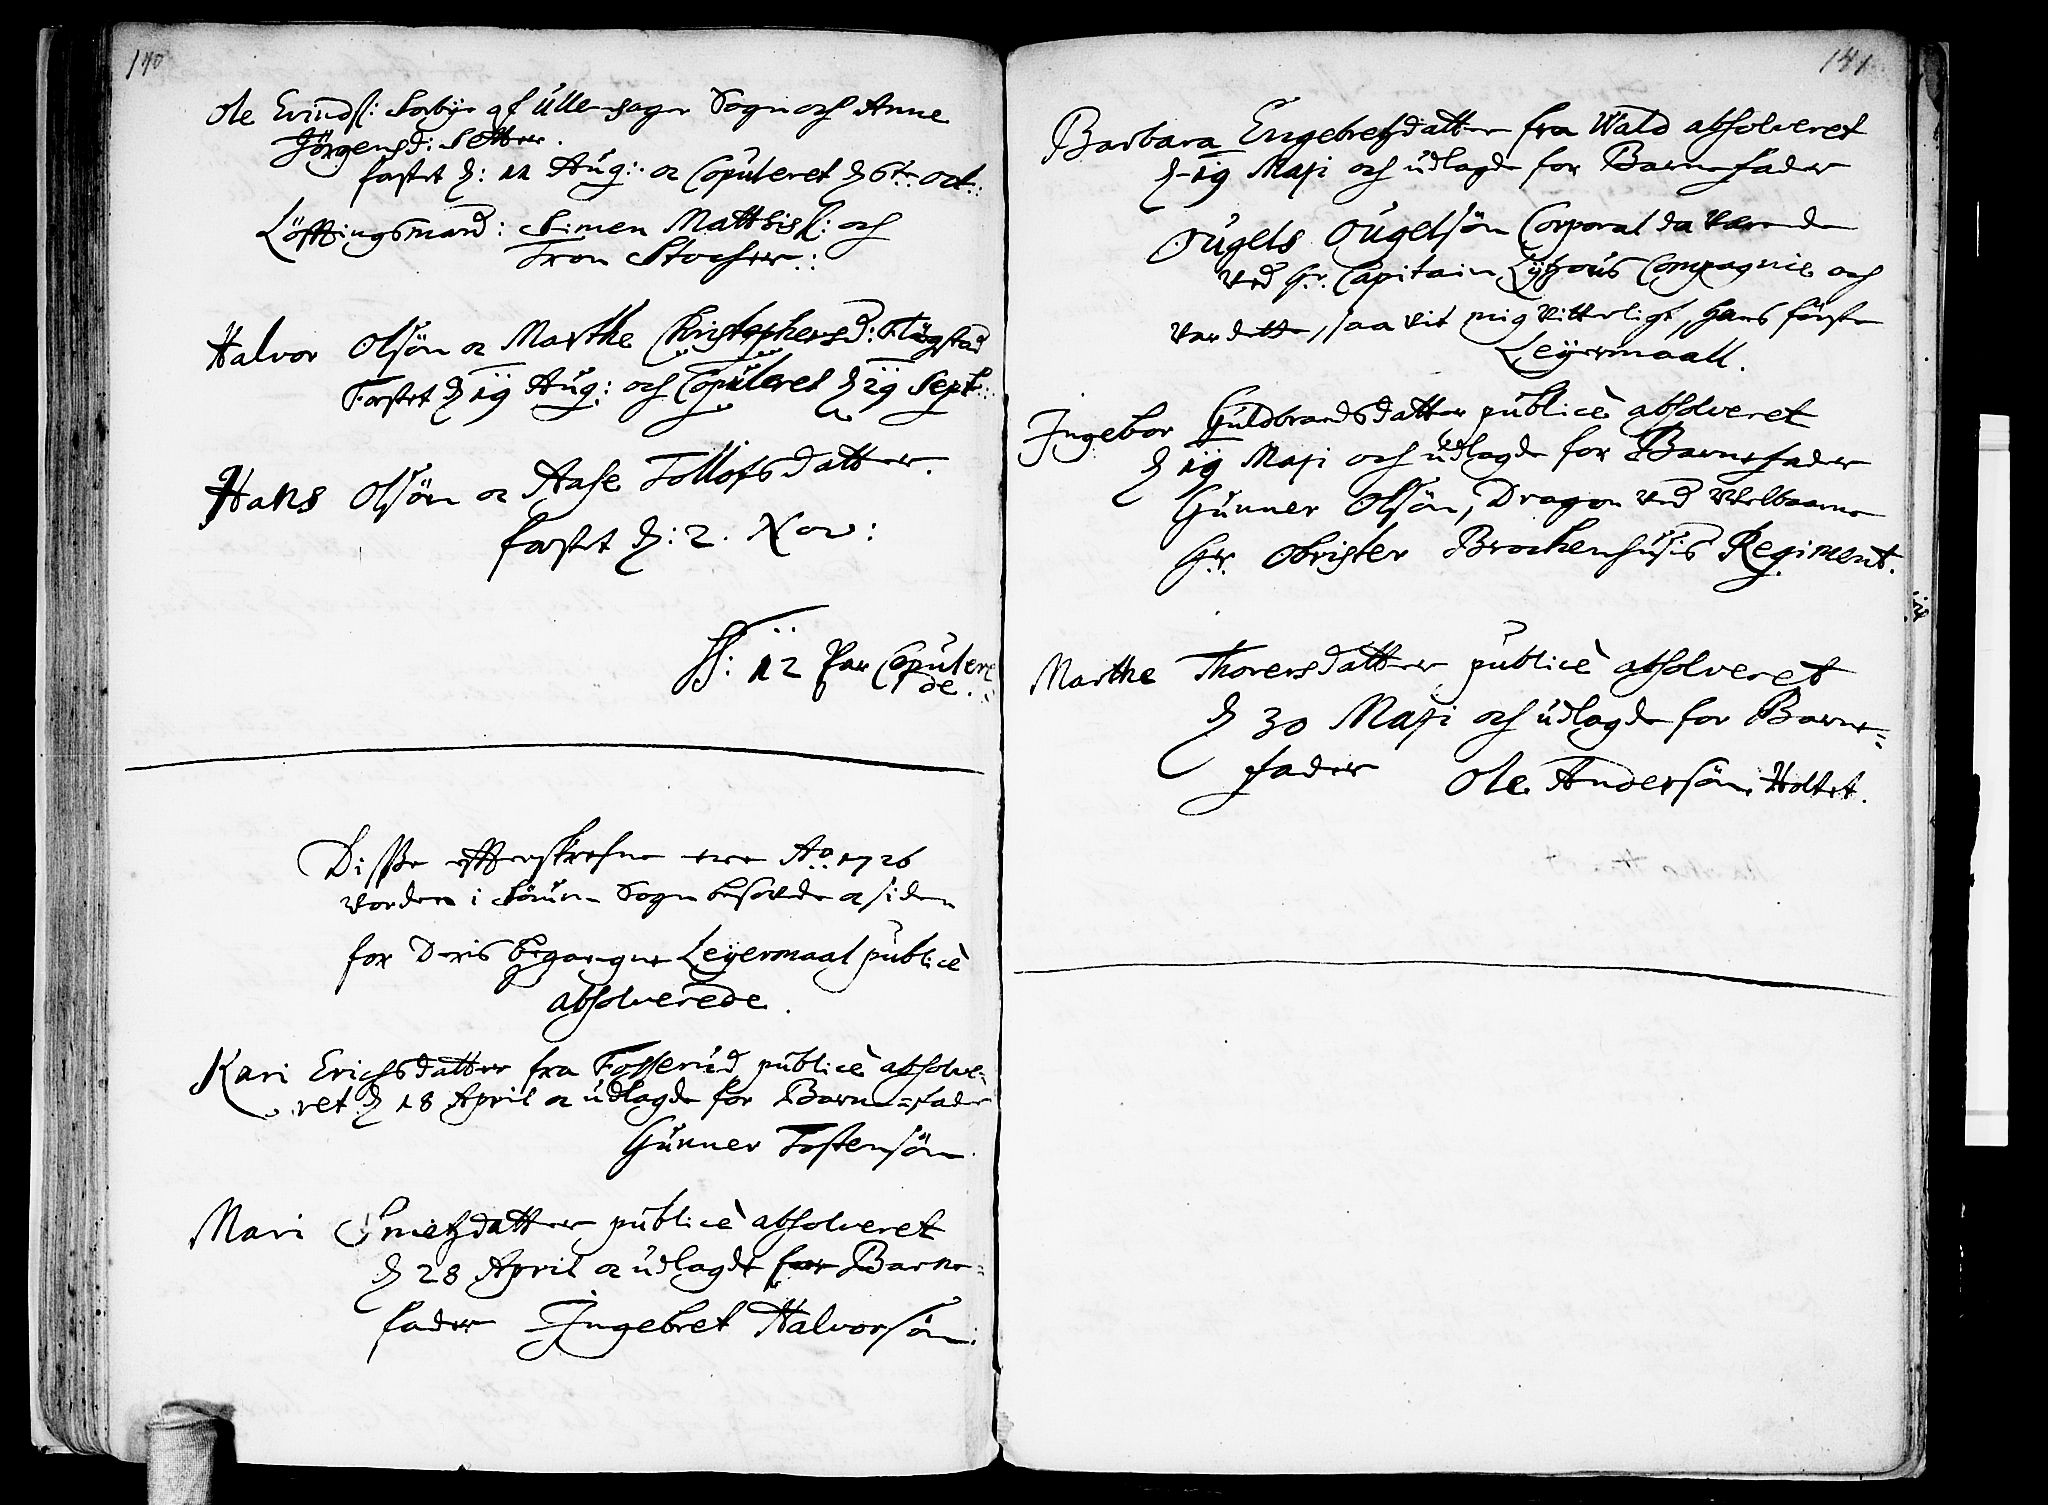 170
Ole Evinds: Sorbÿe af Ullensager Sogn och Anne
Jörgensd: Setter.
fæstet d: 11 Aug: oc Copuleret d 6te Oct:
Löfftingsmænd: Simen Matthis: och
Tron Stocher.
Halvor Olsön oc Marthe Christophersd: Flögstad
Fæstet d 19 Aug: och Copuleret d 29 Sept:
Hans Olsön oc Aase Tollofsdatter.
fæstet d: 2. Nov:
S: 12 Par Copulere
de.
Disse efterskrefne ere Ao 1726
vorden i Sörum Sogn besovede oc siden
for Deris begangne Leÿermaal publicè
absolverede.
Kari Erichsdatter fra Fosserud publicè absolve-
ret d 18 April oc udlagde for Barne-fader
Gunner Tostensön.
Mari Smetzdatter publicè absolveret
d 28 April oc udlagde for Barne-
fader Ingebret Halvorsön.
171
Barbara Engebretzdatter fra Wald absolveret
d 19 Maji och udlagde for Barnefader
Ougels Ougelsön Corporal da værende
ved Hr. Capitain Compagnie och
var dette, saa vit mig vitterligt, hans förste
Leÿermaall.
Ingebor Guldbrandsdatter publicè absolveret
d 19 Maji och udlagde for Barnefader
Gunner Olsön, Dragon ved Velbaarne
Hr. Obrister Brockenhusis Regiment.
Marthe Thoresdatter publicè absolveret
d 30 Maji och udlagde for Barne-
fader Ole Andersön Holtet.